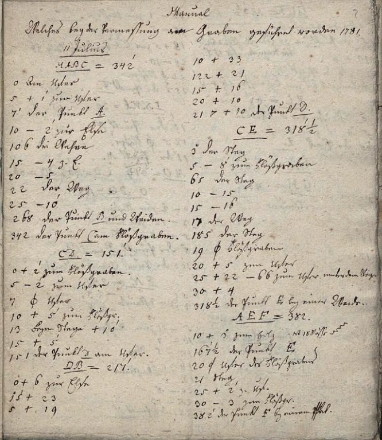 Manual
Welches bey der Vermessung am Graben geführet worden 1791.
11 Julius
ABC = 342
0 Am Ufer
5 + 1 zum Ufer
7 der Punkt A
10 - 2 zur Elste
106 die
15 - 4 z. E.
20 - 5
22 der Weg
25 - 10
268 der Punkt B und Weiden.
342 der Punkt C am Floßgraben.
CD = 151.
0 + 2 zum Floßgraben.
5 - 2 zum Ufer
7 ϕ Ufer
10 + 5 zum Floßgr.
13 Stege + 10
15 + 5
151 der Punkt D am Ufer.
DB = 217.
0 + 6 zur Elste
55 + 23
5 + 19
10 + 23
122 + 21
15 + 16
20 + 10
217 + 10 der Punkt B.
CE = 318½
3 der Steg
5 - 8 zum Floßgraben
65 der Steg
10 - 15
15 - 16
17 der Weg
185 der Steg
19 ϕ Floßgraben
20 + 5 zum Ufer
25 + 22 - 66 zum Ufer
30 + 4
318½ der Punkt E bey einer Weide.
AEF = 382.
10 + 5 zum
167½ der Punkt E
20 ϕ Ufer des Floßgraben
21 Steg
25 + 2 z. Uf.
30 - 3 zum Floßgr.
382 der Punkt F bey einem